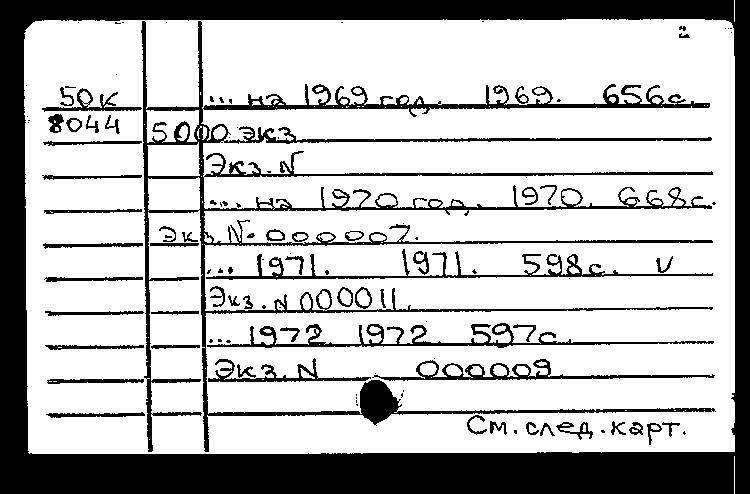 2
50к ... на 1969 год. 1969. 656с.
8044 5000 экз
Экз. N
... на 1970 год. 1970. 668с.
Экз. N. 000007.
... 1971. 1971. 598с. v
Экз. N 000011.
... 1972 1972. 597с.
Экз. N 000009
См. след. карт.